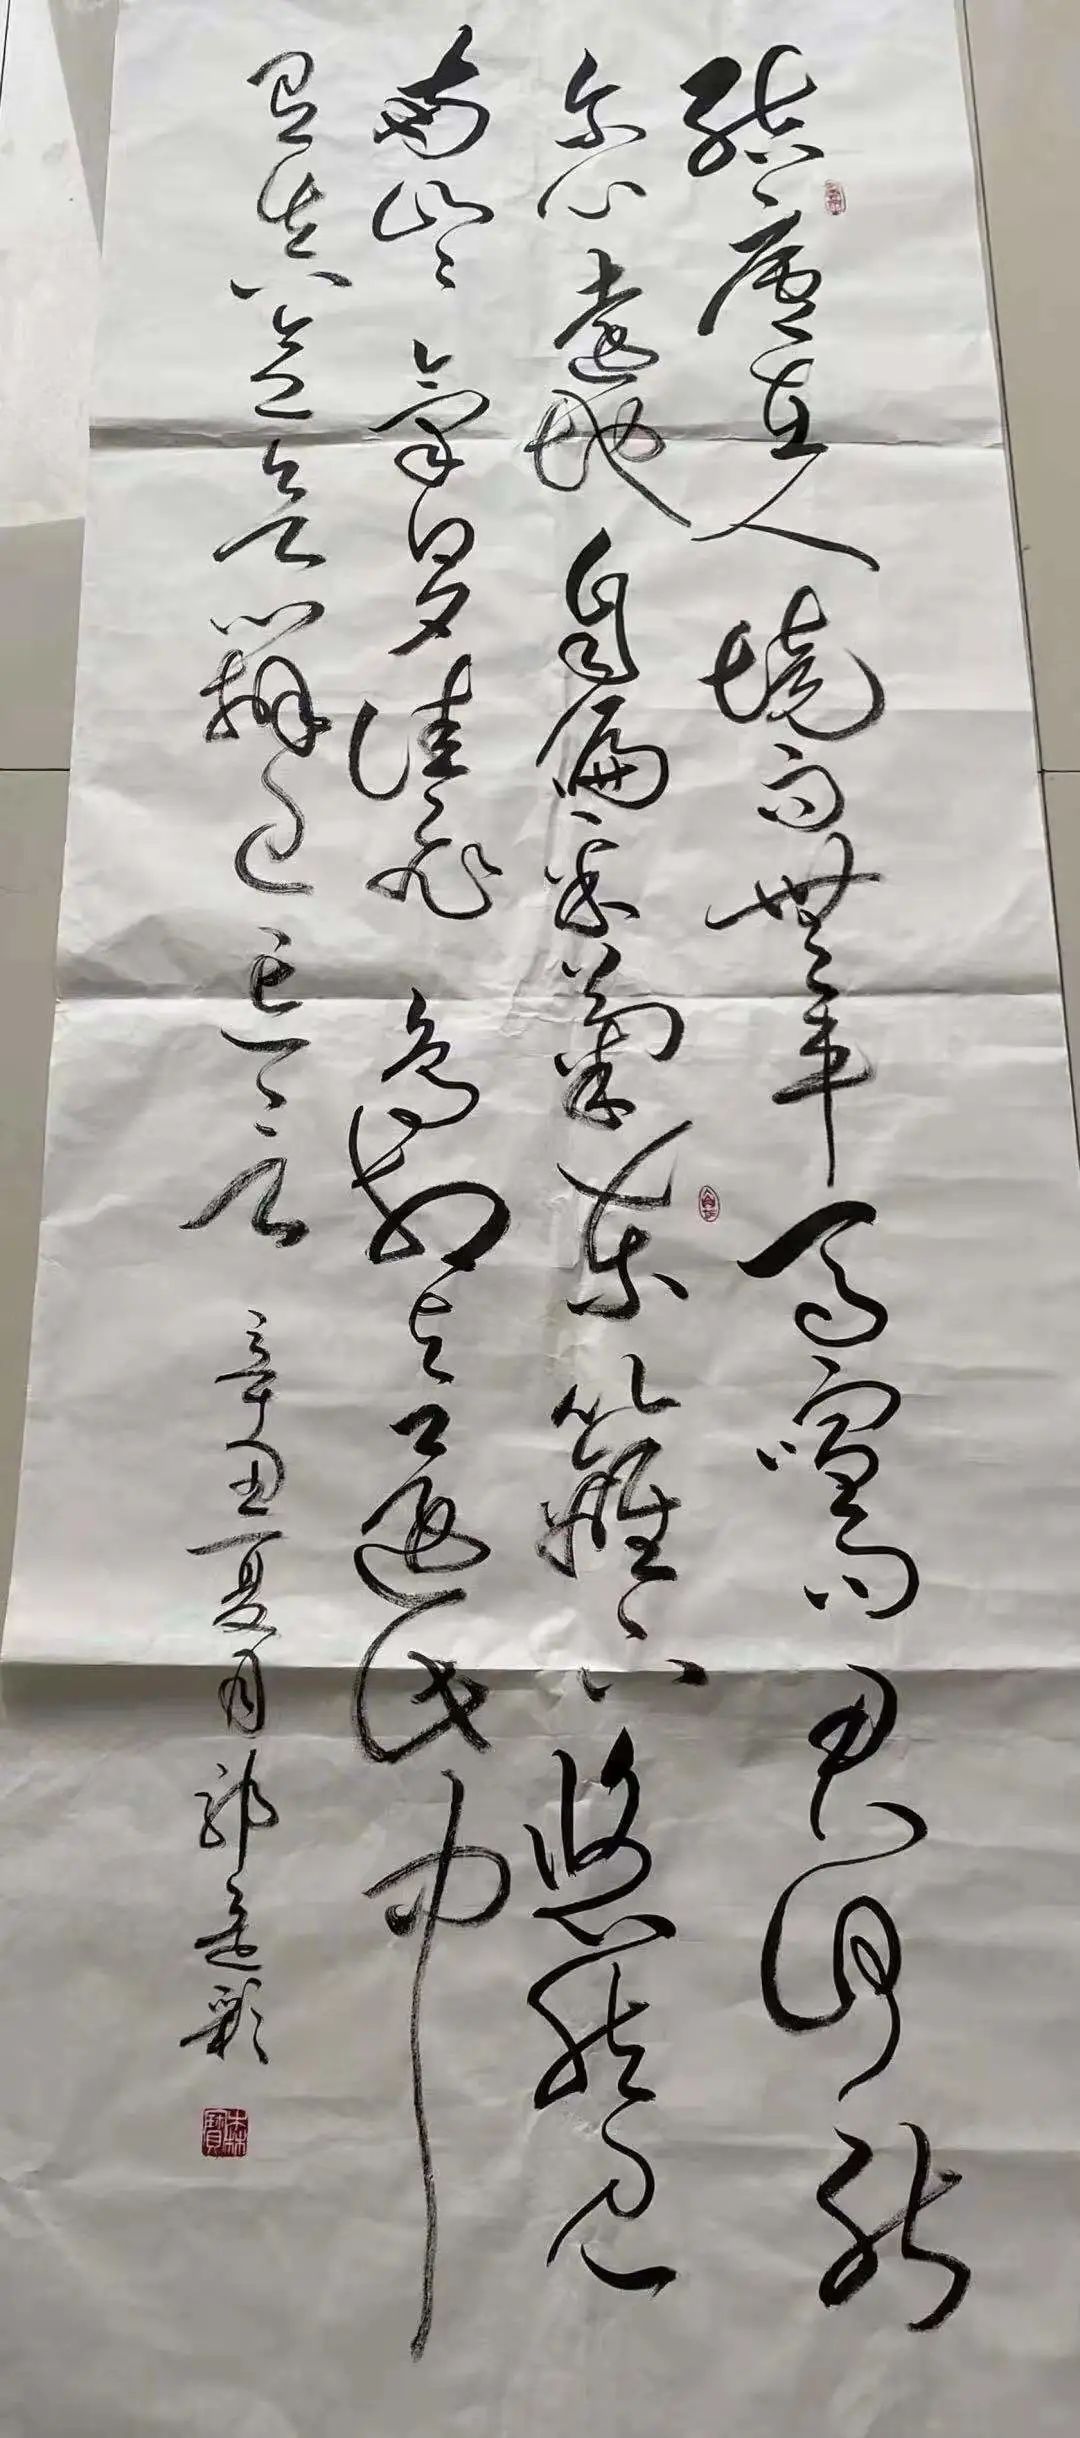 結廬在人境而無車馬喧問君何能
尔心遠地自偏采菊東籬下悠然見
南山山氣日夕佳飛鳥相與還此中
有真意欲辨已忘言 辛丑夏月郭